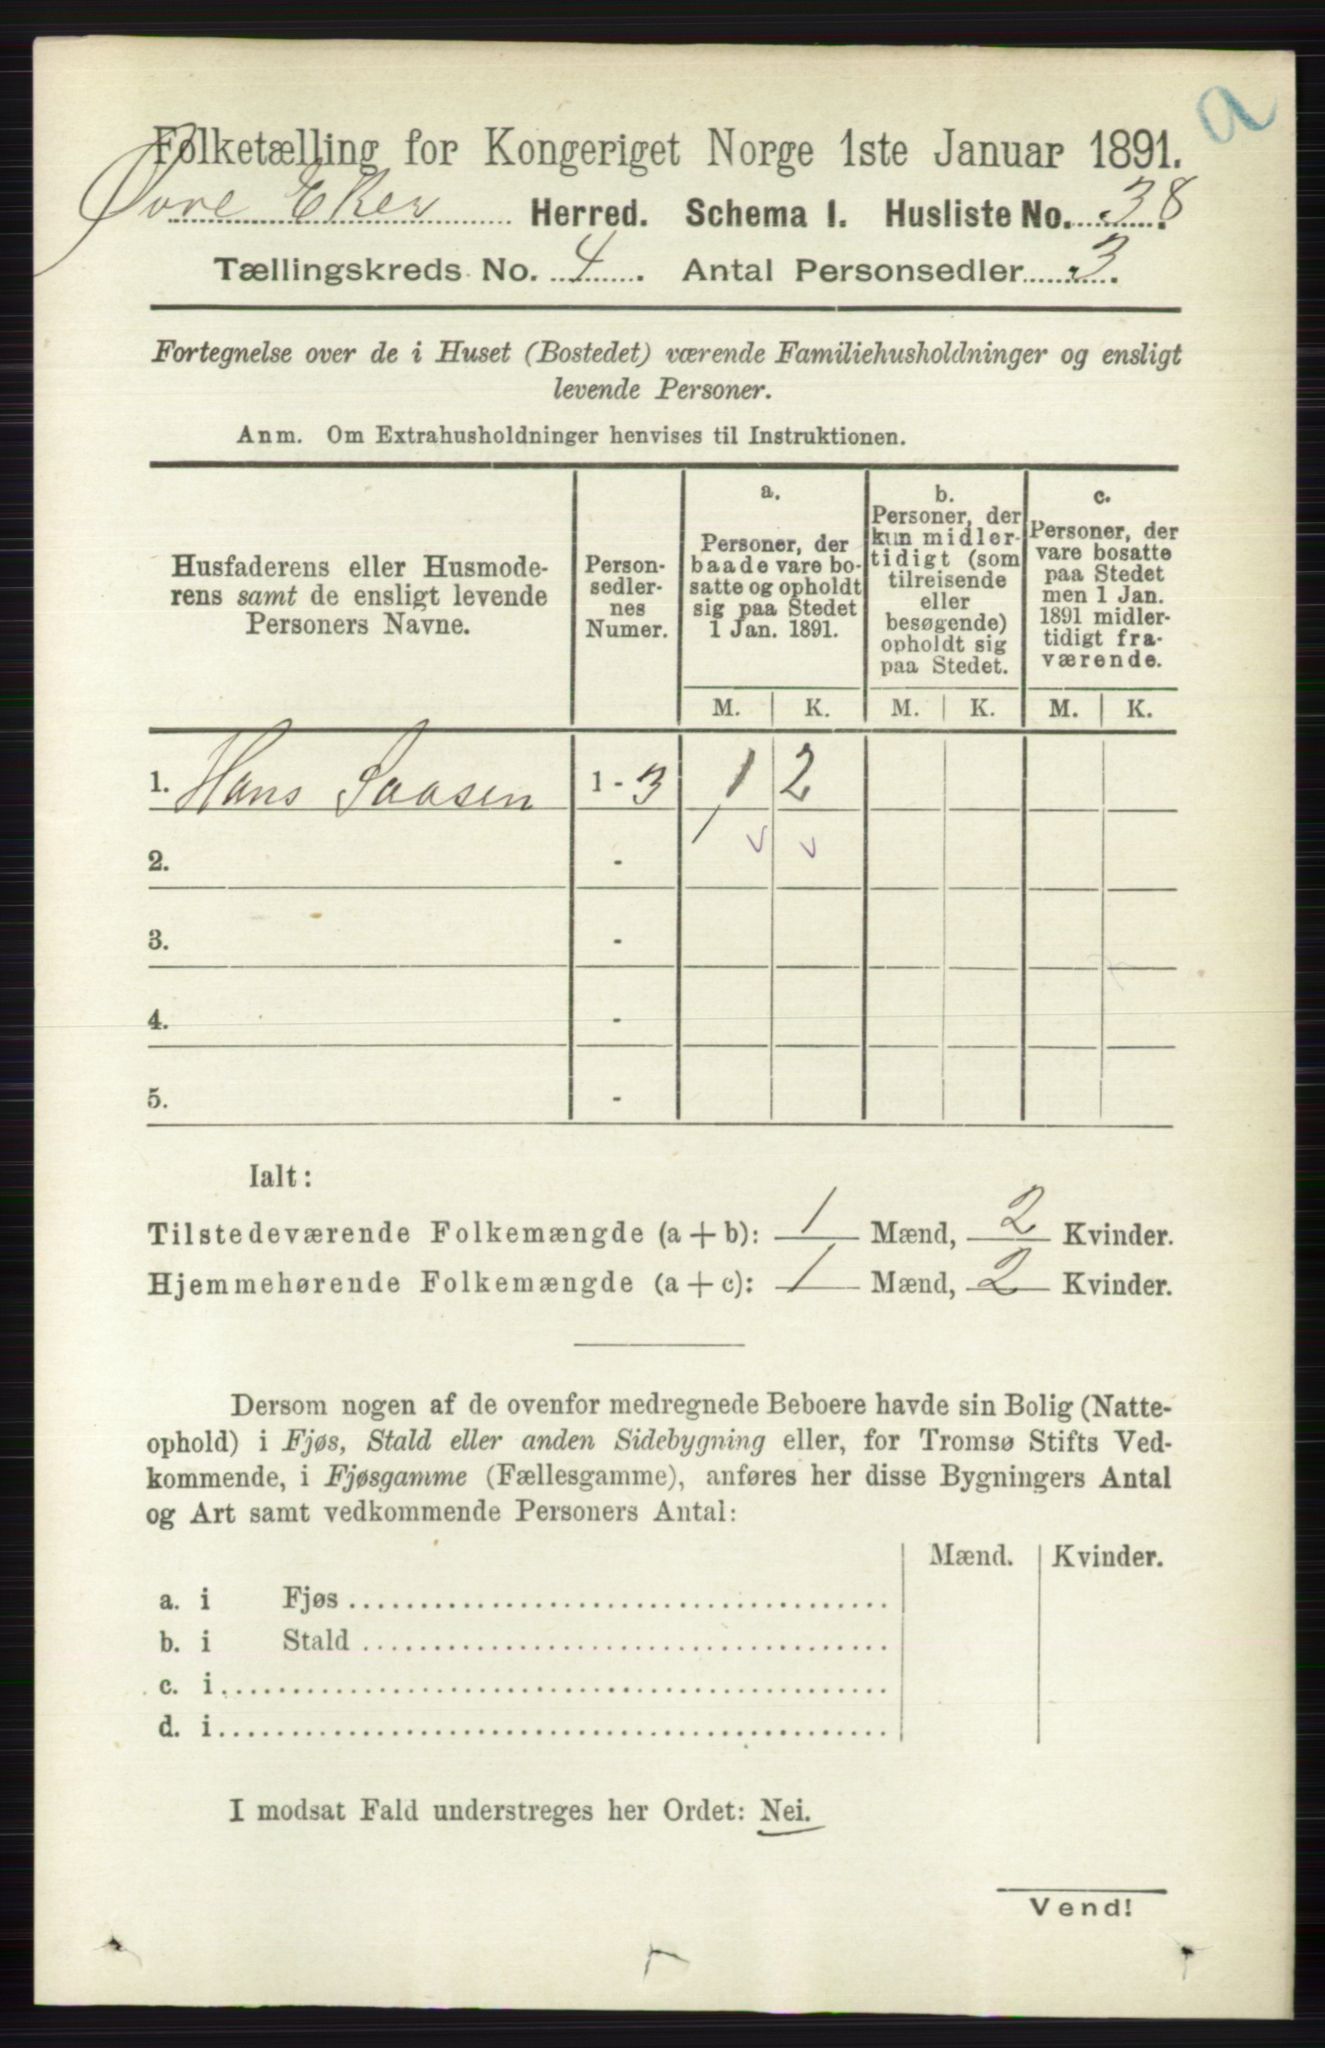 a
Folketælling for Kongeriget Norge 1ste Januar 1891.
Øvre Eker Herred. Schema 1. Husliste No. 38.
Tællingskreds No. 4. Antal Personsedler 3.
Fortegnelse over de i Huset (Bostedet) værende Familiehusholdninger og ensligt
levende Personer.
Anm. Om Extrahusholdninger henvises til Instruktionen.
Husfaderens eller Husmode-
rens samt de ensligt levende
Personers Navne.
Person-
sedler-
nes
Numer.
a.
Personer, der
baade vare bo-
satte og opholdt
sig paa Stedet
1 Jan. 1891.
b.
Personer, der
kun midler-
tidigt (som
tilreisende
eller
besøgende)
opholdt sig
paa Stedet.
c.
Personer, der
vare bosatte
paa Stedet
men 1 Jan.
1891 midler-
tidigt fra-
værende.
M. K. M. K. M. K.
1. Hans Saasen 1 - 3 1 2
2. -
3. -
4. -
5. -
Ialt:
Tilstedeværende Folkemængde (a + b): 1 Mænd, 2 Kvinder.
Hjemmehørende Folkemængde (a + c): 1 Mænd, 2 Kvinder.
Dersom nogen af de ovenfor medregnede Beboere havde sin Bolig (Natte-
ophold) i Fjøs, Stald eller anden Sidebygning eller, for Tromsø Stifts Ved-
kommende, i Fjøsgamme (Fællesgamme), anføres her disse Bygningers Antal
og Art samt vedkommende Personers Antal:
Mænd. Kvinder.
a. i Fjøs
b. i Stald
c. i
d. i
I modsat Fald understreges her Ordet: Nei.
Vend!